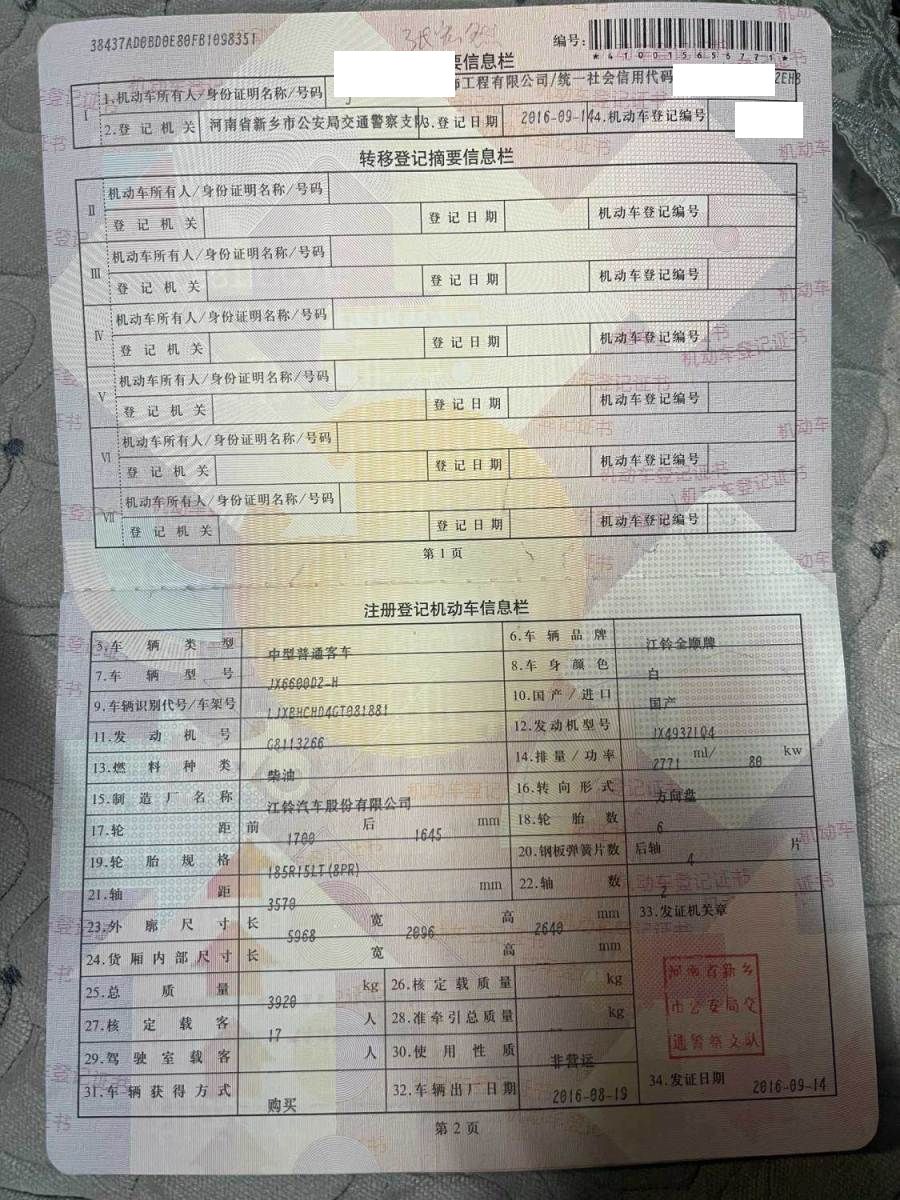 38437AD0BD0E80FB1098351
编号:
*410015655771*
要信息栏
Ⅰ 1.机动车所有人/身份证明名称/号码 工程有限公司/统一社会信用代码
2.登记机关 河南省新乡市公安局交通警察支队 3.登记日期 2016-09-14 4.机动车登记编号
转移登记摘要信息栏
Ⅱ 机动车所有人/身份证明名称/号码
登记机关 登记日期 机动车登记编号
Ⅲ 机动车所有人/身份证明名称/号码
登记机关 登记日期 机动车登记编号
Ⅳ 机动车所有人/身份证明名称/号码
登记机关 登记日期 机动车登记编号
Ⅴ 机动车所有人/身份证明名称/号码
登记机关 登记日期 机动车登记编号
Ⅵ 机动车所有人/身份证明名称/号码
登记机关 登记日期 机动车登记编号
Ⅶ 机动车所有人/身份证明名称/号码
登记机关 登记日期 机动车登记编号
第1页
注册登记机动车信息栏
5.车辆类型 中型普通客车 6.车辆品牌 江铃全顺牌
7.车辆型号 JX6600D2-H 8.车身颜色 白
9.车辆识别代号/车架号 LJXBHCHD4GT081881 10.国产/进口 国产
11.发动机号 G8113266 12.发动机型号 JX493ZLQ4
13.燃料种类 柴油 14.排量/功率 2771 ml/ 80 kw
15.制造厂名称 江铃汽车股份有限公司 16.转向形式 方向盘
17.轮距 前 1700 后 1645 mm 18.轮胎数 6
19.轮胎规格 185R15LT(8PR) 20.钢板弹簧片数 后轴 4 片
21.轴距 3570 mm 22.轴数 2
23.外廓尺寸 长 5968 宽 2096 高 2640 mm 33.发证机关章
24.货厢内部尺寸 长 宽 高 mm
25.总质量 3920 kg 26.核定载质量 kg
27.核定载客 17 人 28.准牵引总质量 kg
29.驾驶室载客 人 30.使用性质 非营运
31.车辆获得方式 购买 32.车辆出厂日期 2016-08-19 34.发证日期 2016-09-14
河南省新乡
市公安局交
通警察支队
第2页